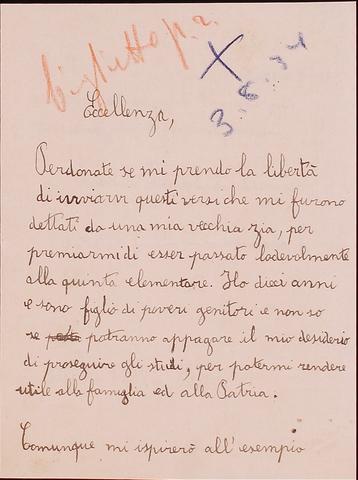 biglietto p. r.
X
3.6.34
Eccellenza,
Perdonate se mi prendo la libertà
di inviarvi questi versi che mi furono
dettati da una mia vecchia zia, per
premiarmi di esser passato lodevolmente
alla quinta elementare. Ho dieci anni
e sono figlio di poveri genitori e non so
se potranno appagare il mio desiderio
di proseguire gli studi, per potermi rendere
utile alla famiglia ed alla Patria.
Comunque mi ispirerò all'esempio